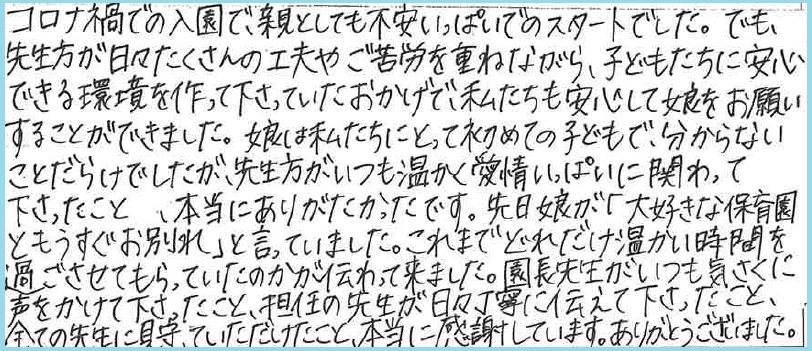 コロナ禍での入園で、親としても不安いっぱいでのスタートでした。でも、
先生方が日々たくさんの工夫やご苦労を重ねながら、子どもたちに安心
できる環境を作って下さっていたおかげで、私たちも安心して娘をお願い
することができました。娘は私たちにとって初めての子どもで、分からない
ことだらけでしたが、先生方がいつも温かく愛情いっぱいに関わって
下さったこと、本当にありがたかったです。先日娘が「大好きな保育園
ともうすぐお別れ」と言っていました。これまでどれだけ温かい時間を
過ごさせてもらっていたのかが伝わって来ました。園長先生がいつも気さくに
声をかけて下さったこと、担任の先生が日々丁寧に伝えて下さったこと、
全ての先生に見守っていただけたこと、本当に感謝しています。ありがとうございました。